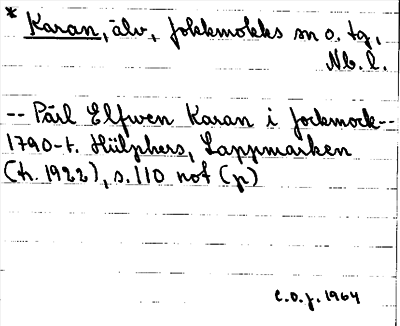 * Karan, älv, Jokkmokks sn o. tg,
Nb. l.
-- Pärl Elfwen Karan i Jockmock--
1790-t. Hülphers, Lappmarken
(tr. 1922), s. 110 not (p)
C.O.J. 1964